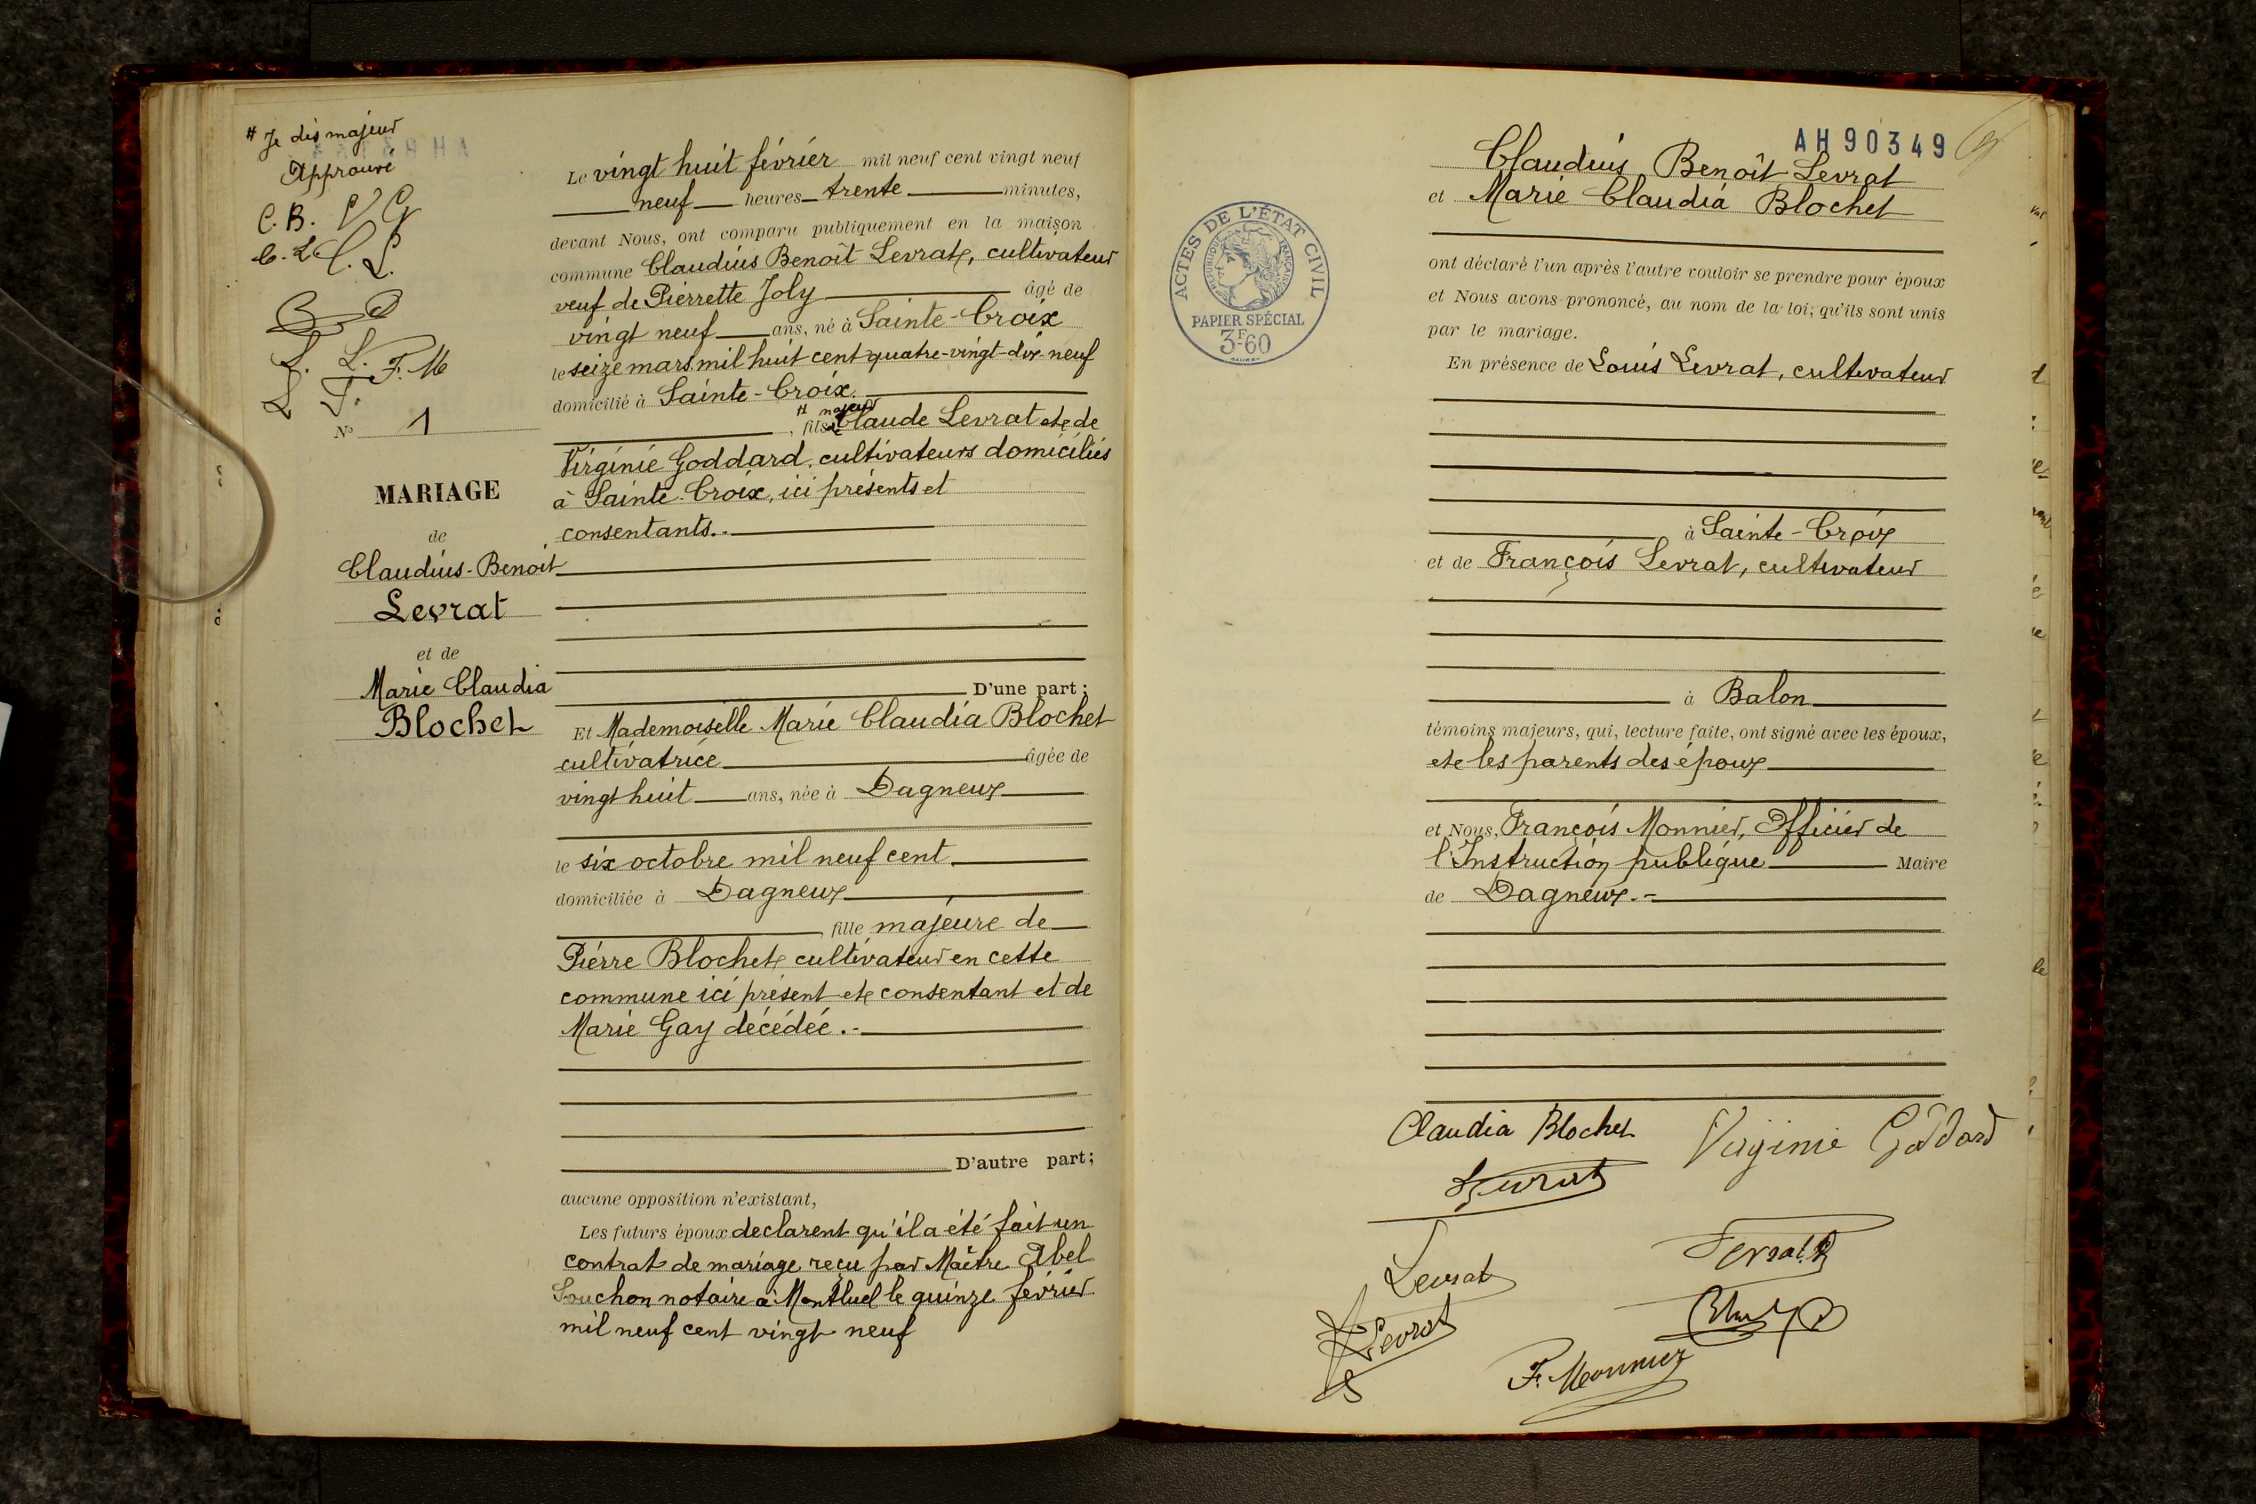 # Je dis majeur
Approuvé
C. B. V G
C. L. C. L.
L. L. F. M
N° 1
MARIAGE
de
Claudius-Benoit
Levrat
et de
Marie Claudia
Blochet
Le vingt huit février mil neuf cent vingt neuf
neuf heures trente minutes,
devant Nous, ont comparu publiquement en la maison
commune Claudius Benoît Levrat, cultivateur
veuf de Pierrette Joly âgé de
vingt neuf ans, né à Sainte-Croix
le seize mars mil huit cent quatre-vingt-dix-neuf
domicilié à Sainte-Croix.
# majeur
, fils de Claude Levrat et de
Virginie Goddard, cultivateurs domiciliés
à Sainte-Croix, ici présents et
consentants.-
D'une part;
Et Mademoiselle Marie Claudia Blochet
cultivatrice âgée de
vingt huit ans, née à Dagneux
le six octobre mil neuf cent
domiciliée à Dagneux
, fille majeure de
Pierre Blochet, cultivateur en cette
commune ici présent et consentant et de
Marie Gay décédée.-
D'autre part;
aucune opposition n'existant,
Les futurs époux declarent qu'il a été fait un
contrat de mariage reçu par Maître Abel
Souchon notaire à Montluel le quinze février
mil neuf cent vingt neuf
AH90349
Claudius Benoît Levrat
et Marie Claudia Blochet
ACTES DE L'ÉTAT CIVIL
RÉPUBLIQUE FRANÇAISE
PAPIER SPÉCIAL
3F60
ont déclaré l'un après l'autre vouloir se prendre pour époux
et Nous avons prononcé, au nom de la loi, qu'ils sont unis
par le mariage.
En présence de Louis Levrat, cultivateur
à Sainte-Croix
et de François Levrat, cultivateur
à Balon
témoins majeurs, qui, lecture faite, ont signé avec les époux,
et les parents des époux
et Nous, François Monnier, Officier de
l'Instruction publique Maire
de Dagneux.-
Claudia Blochet Virginie Goddard
Levrat
Levrat
Levrat
F. Monnier